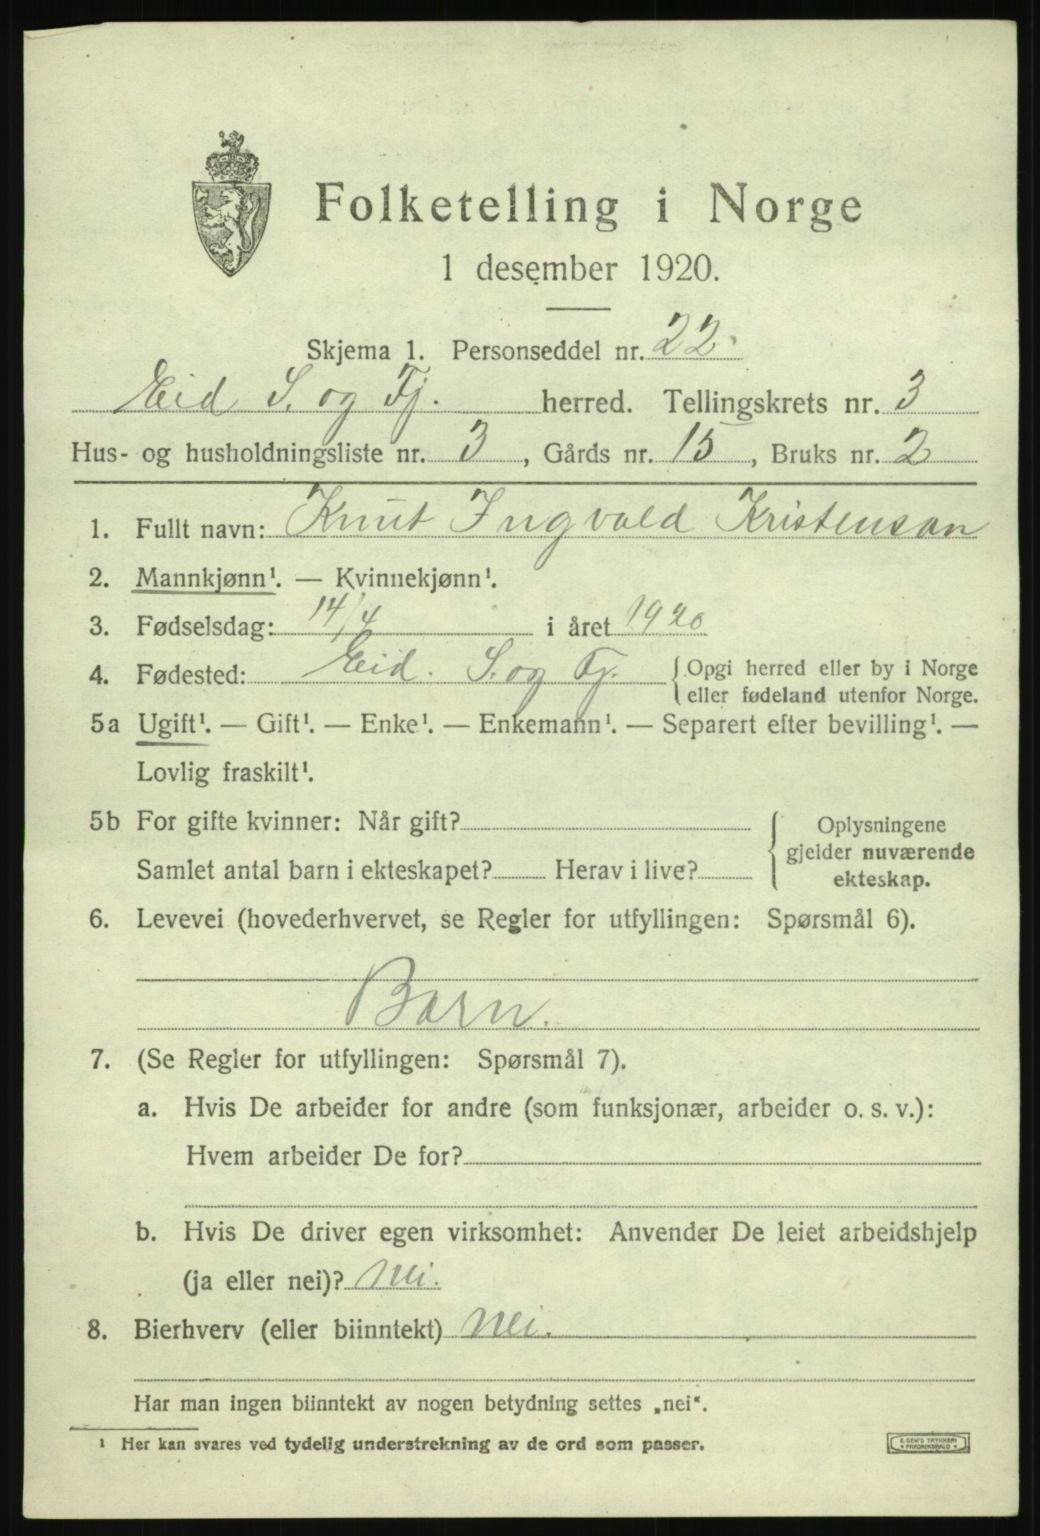 Folketelling i Norge
1 desember 1920.
Skjema 1. Personseddel nr. 22.
Eid S. og Fj. herred. Tellingskrets nr. 3
Hus- og husholdningsliste nr. 3, Gårds nr. 15, Bruks nr. 2
1. Fullt navn: Knut Ingvald Kristensan
2. Mannkjønn¹. — Kvinnekjønn¹.
3. Fødselsdag: 14/4 i året 1920
4. Fødested: Eid. S. og Fj. {Opgi herred eller by i Norge
eller fødeland utenfor Norge.
5a Ugift¹. — Gift¹. — Enke¹. — Enkemann¹. — Separert efter bevilling¹. —
Lovlig fraskilt¹.
5b For gifte kvinner: Når gift?
Samlet antal barn i ekteskapet? Herav i live?
Oplysningene
gjelder nuværende
ekteskap.
6. Levevei (hovederhvervet, se Regler for utfyllingen: Spørsmål 6).
Barn.
7. (Se Regler for utfyllingen: Spørsmål 7).
a. Hvis De arbeider for andre (som funksjonær, arbeider o. s. v.):
Hvem arbeider De for?
b. Hvis De driver egen virksomhet: Anvender De leiet arbeidshjelp
(ja eller nei)? Nei.
8. Bierhverv (eller biinntekt) Nei.
Har man ingen biinntekt av nogen betydning settes „nei".
¹ Her kan svares ved tydelig understrekning av de ord som passer.
E. SEM'S TRYKKERI
• FREDRIKSHALD •